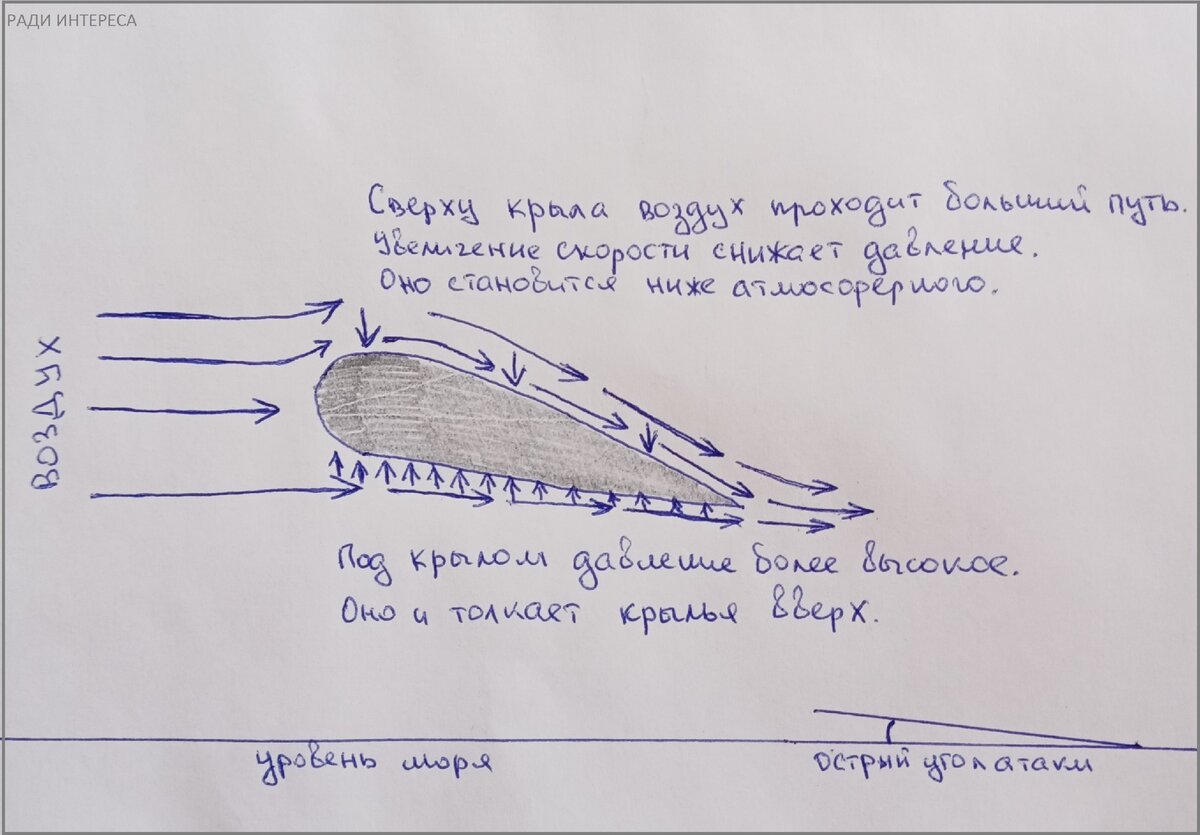 РАДИ ИНТЕРЕСА
Сверху крыла воздух проходит больший путь.
Увеличение скорости снижает давление.
Оно становится ниже атмосферного.
ВОЗДУХ
Под крылом давление более высокое.
Оно и толкает крылья вверх.
уровень моря
острый угол атаки